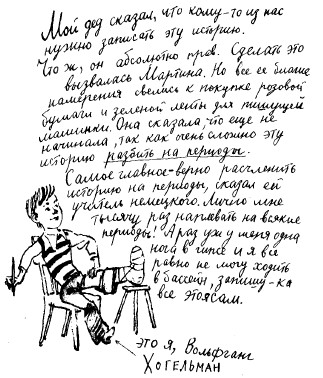 Мой дед сказал, что кому-то из нас
нужно записать эту историю.
Что ж, он абсолютно прав. Сделать это
вызвалась Мартина. Но все её благие
намерения свелись к покупке розовой
бумаги и зеленой ленты для пишущей
машинки. Она сказала, что еще не
начинала, так как очень сложно эту
историю разбить на периоды.
Самое главное-верно расчленить
историю на периоды, сказал ей
учитель немецкого. Лично мне
тысячу раз наплевать на всякие
периоды! А раз уж у меня одна
нога в гипсе и я все
равно не могу ходить
в бассейн, запишу-ка
все это я сам.
это я, Вольфганг
Хогельман